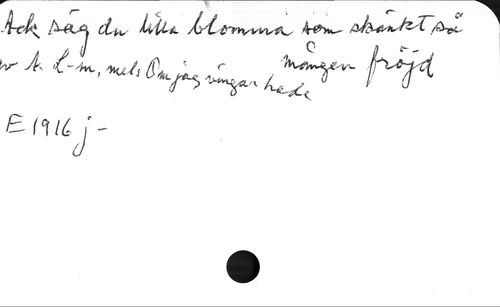 Ack säg du lilla blomma som skänkt så
mången fröjd
av A. L-m, mel: Om jag vingar hade
E 1916 j -